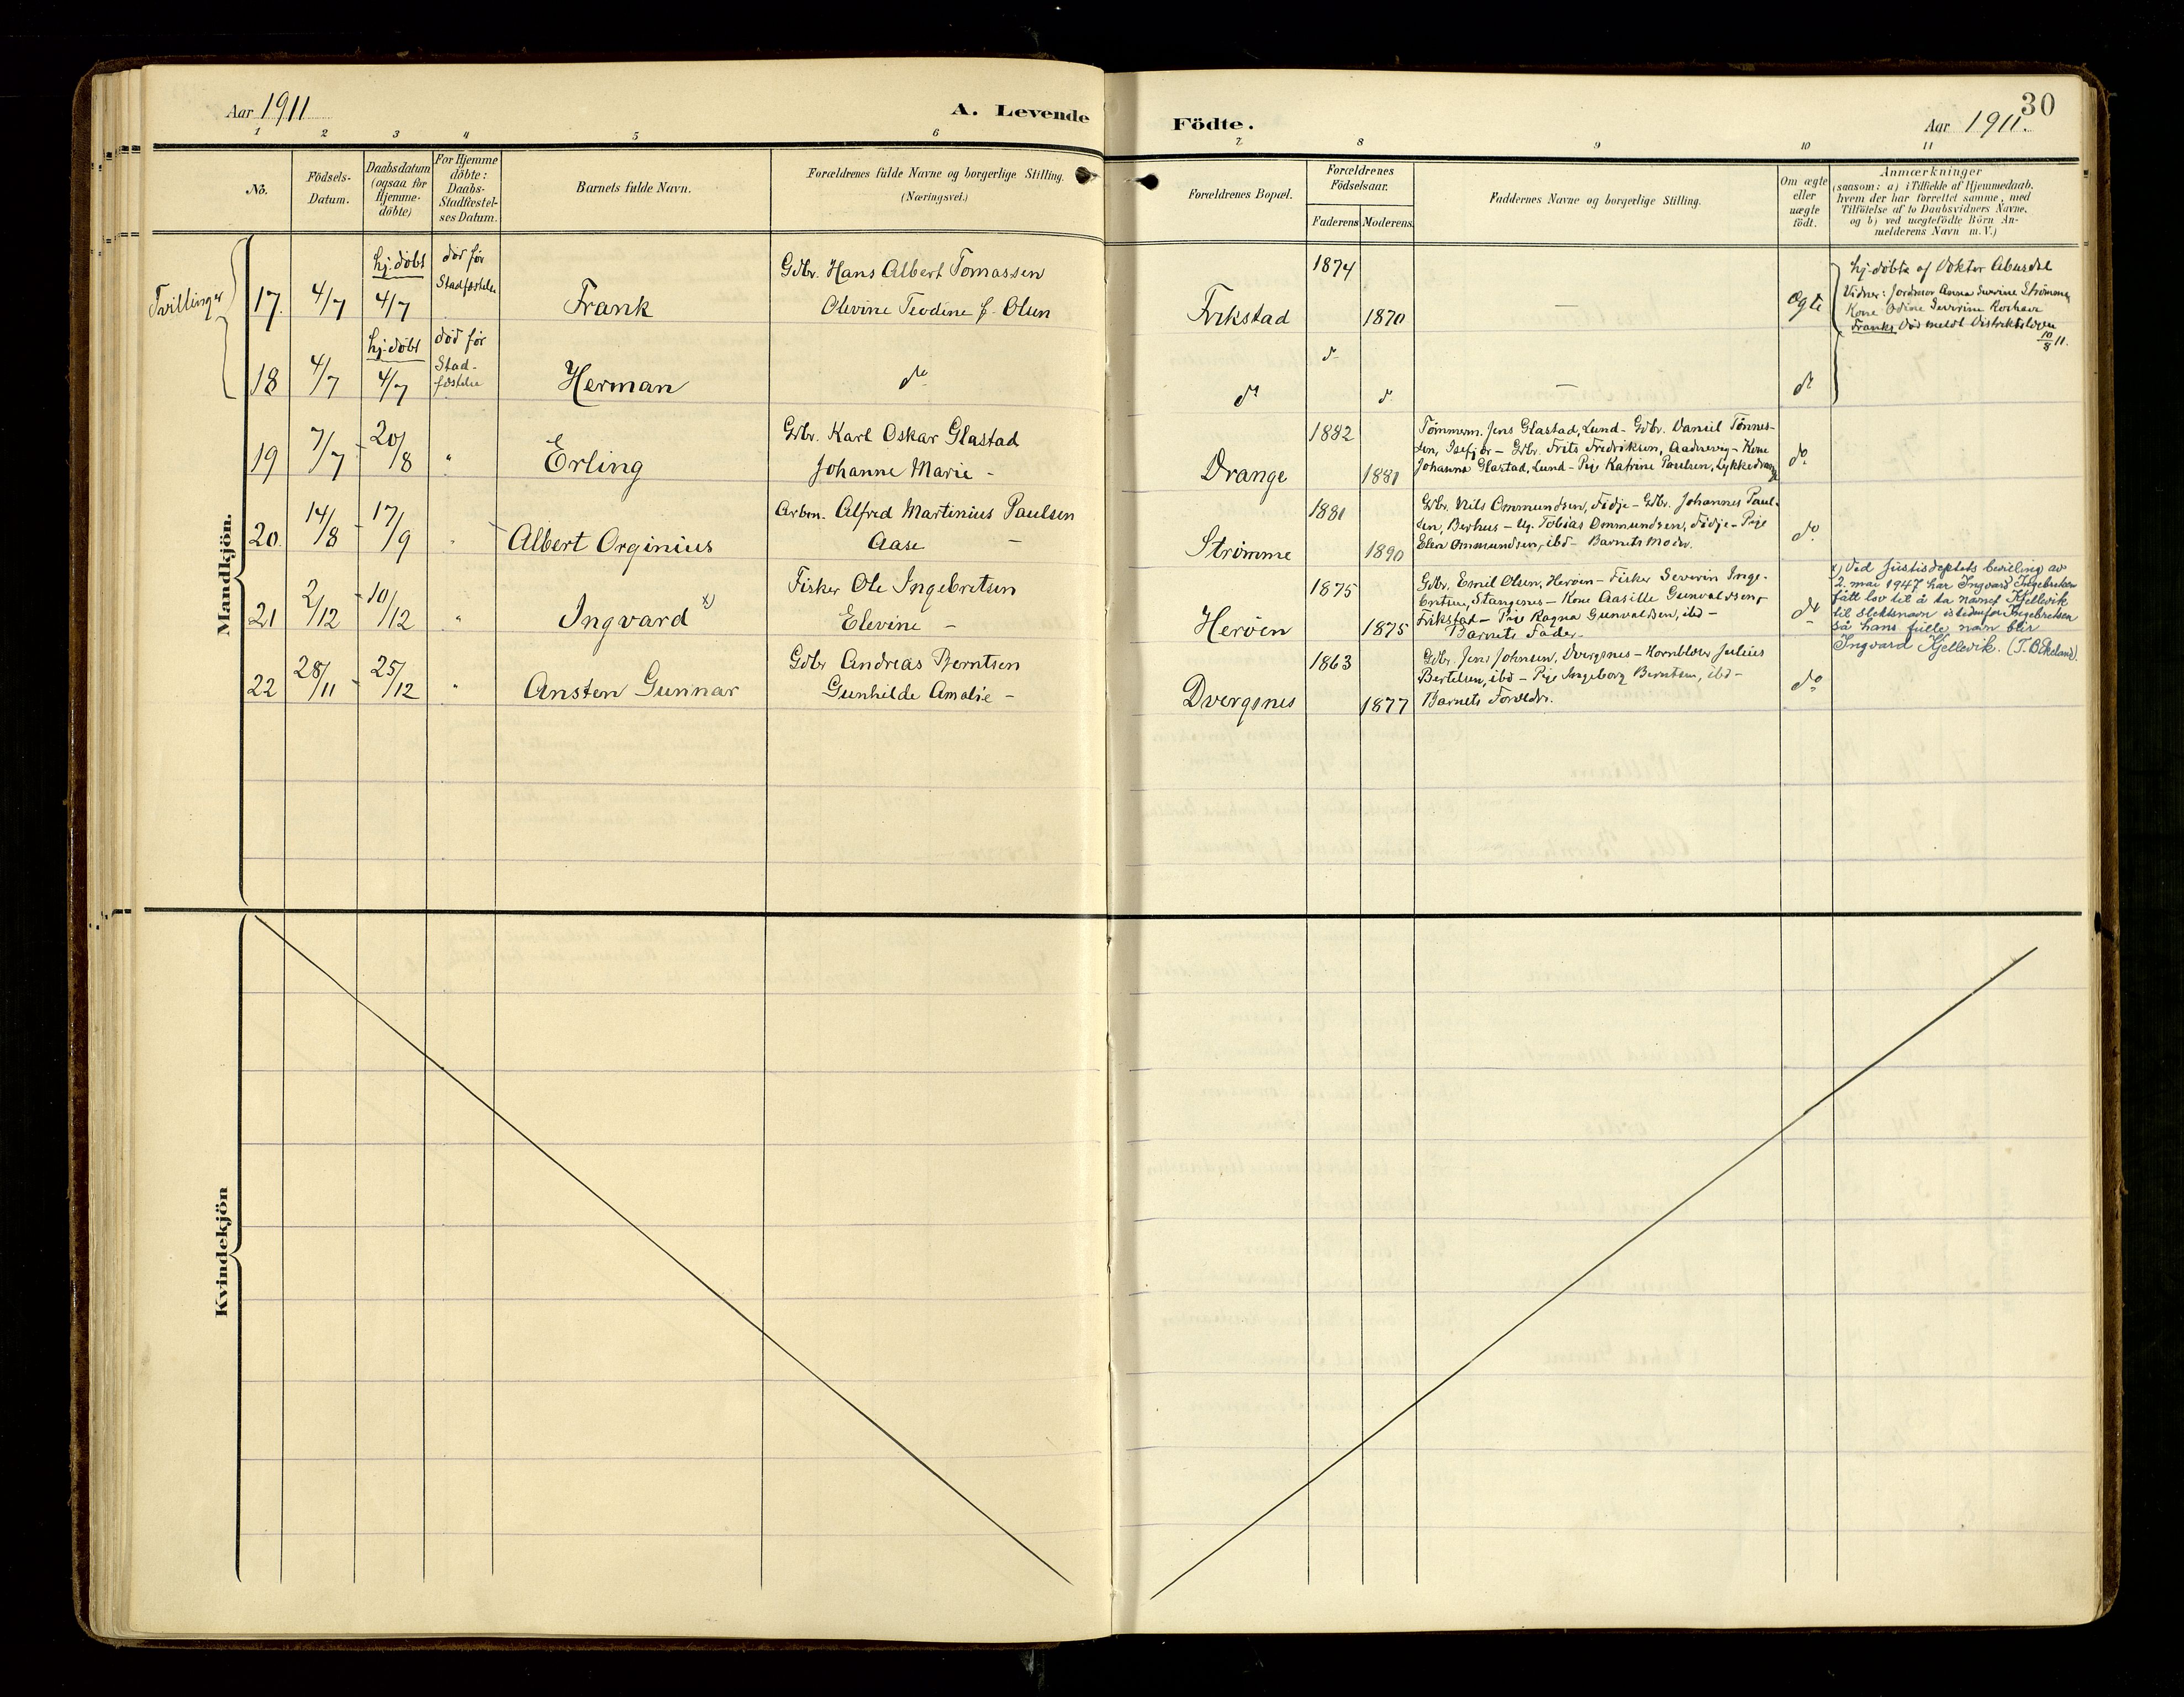 30
Aar 1911
A. Levende
Födte.
Aar 1911.
1 2 3 4 5 6 7 8 9 10 11
No.
Födsels-
Datum.
Daabsdatum
(ogsaa for
Hjemme-
döbte)
For Hjemme
döbte:
Daabs-
Stadfæstel-
ses Datum.
Barnets fulde Navn.
Forældrenes fulde Navne og borgerlige Stilling.
(Næringsvei.)
Forældrenes Bopæl.
Forældrenes
Födselsaar.
Faderens Moderens
Faddernes Navne og borgerlige Stilling.
Om ægte
eller
uægte
födt.
Anmærkninger
(saasom: a) i Tilfælde af Hjemmedaab,
hvem der har forrettet samme, med
Tilföielse af to Daabsvidners Navne,
og b) ved uægtefödte Börn An-
melderens Navn m. V.)
Mandkjön.
Tvillinger
17.
4/7
hj. döbt
4/7
död för
Stadfæstelse
Frank
Gdbr. Hans Albert Tomassen
Olevine Teodine f. Olsen
Frikstad
1874
1870
—
Ægte
hj. döbte af Doktor Abusdal
Vidner: Jordmor Anna Severine Strømme,
Kone Odine Severine
Franks Död meldt Distriktslægen
10/8 11.
18
4/7
hj. döbt
4/7
död för
Stad-
fæstelse
Herman
do
do
do
do
—
do
19
7/7 - 20/8
"
Erling
Gdbr. Karl Oskar Glastad
Johanne Marie -
Drange
1882
1881
Tømmerm. Jens Glastad, Lund - Gdbr. Daniel Tönnes-
sen, - Gdbr. Frits Fredriksen, - Kone
Johanna Glastad, Lund - Pige Katrine Paulsen,
do
20.
14/8 - 17/9
"
Albert Orginius
Arbm. Alfred Martinius Paulsen
Aase -
Strømme
1881
1890
Gdbr. Nils Ommundsen, Fidje - Gdbr. Johannes Paul-
sen, - Ug. Tobias Ommundsen, Fidje - Pige
Elen Ommundsen, ibd - Barnets Moder.
do.
21
2/12 - 10/12
"
Ingvard x)
Fisker Ole Ingebretsen
Elevine -
Herøen
1875
1875
Gdbr. Emil Olsen, Herøen - Fisker Severin Inge-
bretsen, Stangenes - Kone Aasille Gunvaldsen,
Frikstad - Pige Ragna Gunvaldsen, ibd -
Barnets Fader.
do
x) Ved Justisdeptets bevilling av
2. mai 1947 har Ingvard Ingebretsen
fått lov til å ta navnet Kjellevik
til slektsnavn istedenfor Ingebretsen
så hans fulle navn blir
Ingvard Kjellevik. (T. B. Ekeland).
22
28/11 - 25/12
"
Ansten Gunnar
Gdbr Andreas Berntsen
Gunhilde Amalie -
Dvergsnes
1863
1877
Gdbr. Jens Johnsen, Dvergsnes - Hornblæser Julius
Bertelsen, ibd - Pige Ingeborg Berntsen, ibd -
Barnets Forældre.
do
Kvindekjön